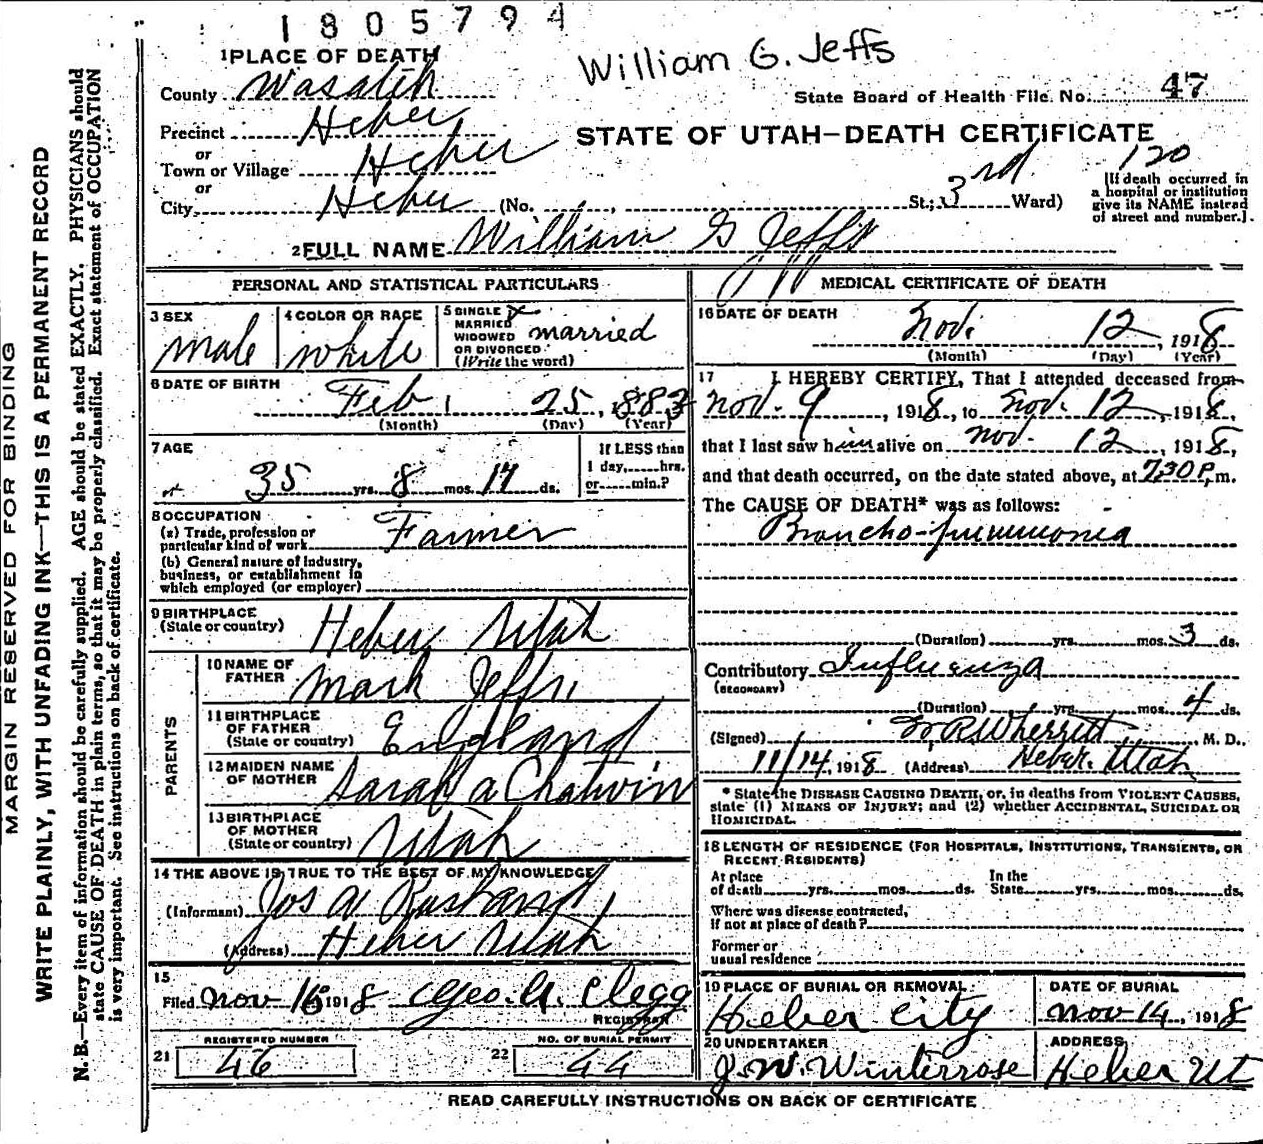 1805794
William G. Jeffs
1 PLACE OF DEATH
County Wasatch
State Board of Health File No. 47
Precinct Heber
STATE OF UTAH—DEATH CERTIFICATE
or
Town or Village Heber
120
or
City Heber (No. , St.; 3rd Ward)
[If death occurred in
a hospital or institution
give its NAME instead
of street and number.]
2 FULL NAME William G Jeffs
PERSONAL AND STATISTICAL PARTICULARS
3 SEX
male
4 COLOR OR RACE
white
5 SINGLE
MARRIED
WIDOWED
OR DIVORCED
(Write the word)
married
6 DATE OF BIRTH
Feb 25, 1883
(Month) (Day) (Year)
7 AGE
35 yrs. 8 mos. 17 ds.
If LESS than
1 day, hrs.
or min.?
8 OCCUPATION
(a) Trade, profession or
particular kind of work Farmer
(b) General nature of industry,
business, or establishment in
which employed (or employer)
9 BIRTHPLACE
(State or country) Heber Utah
PARENTS
10 NAME OF
FATHER Mark Jeffs
11 BIRTHPLACE
OF FATHER
(State or country) England
12 MAIDEN NAME
OF MOTHER Sarah a Chatwin
13 BIRTHPLACE
OF MOTHER
(State or country) Utah
14 THE ABOVE IS TRUE TO THE BEST OF MY KNOWLEDGE
(Informant) Jos a Rasband
(Address) Heber Utah
15
Filed nov 16 1918 Geo. A. Clegg
REGISTRAR
REGISTERED NUMBER
21 46
NO. OF BURIAL PERMIT
22 44
MEDICAL CERTIFICATE OF DEATH
16 DATE OF DEATH
Nov. 12, 1918
(Month) (Day) (Year)
17 I HEREBY CERTIFY, That I attended deceased from
Nov. 9, 1918, to Nov. 12, 1918,
that I last saw him alive on Nov. 12, 1918,
and that death occurred, on the date stated above, at 7.30 P.m.
The CAUSE OF DEATH* was as follows:
Broncho-pneumonia
(Duration) yrs. mos. 3 ds.
Contributory Influenza
(SECONDARY)
(Duration) yrs. mos. 4 ds.
(Signed) W R Wherritt, M. D.,
11/14, 1918 (Address) Heber. Utah
* State the DISEASE CAUSING DEATH, or, in deaths from VIOLENT CAUSES,
state (1) MEANS OF INJURY; and (2) whether ACCIDENTAL, SUICIDAL OR
HOMICIDAL.
18 LENGTH OF RESIDENCE (FOR HOSPITALS, INSTITUTIONS, TRANSIENTS, OR
RECENT RESIDENTS)
At place
of death yrs. mos. ds.
In the
State yrs. mos. ds.
Where was disease contracted,
if not at place of death?
Former or
usual residence
19 PLACE OF BURIAL OR REMOVAL
Heber City
DATE OF BURIAL
nov 14, 1918
20 UNDERTAKER
J. W. Winterrose
ADDRESS
Heber Ut
READ CAREFULLY INSTRUCTIONS ON BACK OF CERTIFICATE
MARGIN RESERVED FOR BINDING
WRITE PLAINLY, WITH UNFADING INK—THIS IS A PERMANENT RECORD
N. B.—Every item of information should be carefully supplied. AGE should be stated EXACTLY. PHYSICIANS should
state CAUSE OF DEATH in plain terms, so that it may be properly classified. Exact statement of OCCUPATION
is very important. See instructions on back of certificate.